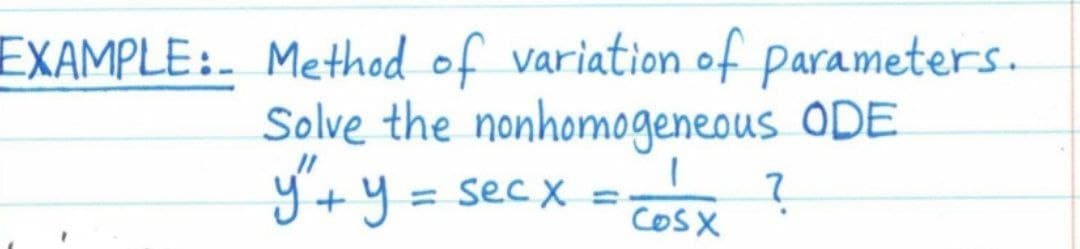 EXAMPLE:- Method of variation of parameters.
Solve the nonhomogeneous ODE
y'' + y = sec x = 1/cos x ?